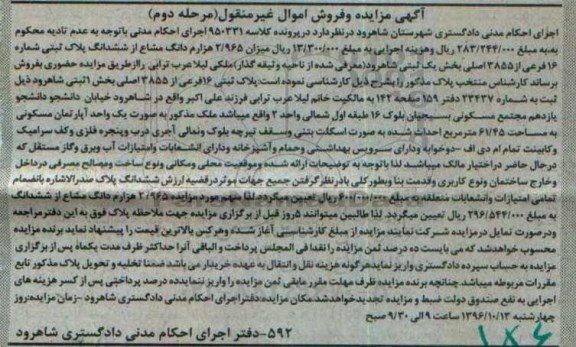 آگهی مزایده وفروش اموال غیرمنقول(مرحله دوم)
اجرای احکام مدنی دادگستری شهرستان شاهرود درنظردارد درپرونده کلاسه ۹۵۰۳۳۱ اجرای احکام مدنی باتوجه به عدم تادیه محکوم
به،به مبلغ ۲۸۳/۲۴۴/۰۰۰ ریال وهزینه اجرایی به مبلغ ۱۳/۳۰۰/۰۰۰ ریال میزان ۲/۹۶۵ هزارم دانگ مشاع از ششدانگ پلاک ثبتی شماره
۱۶ فرعی از ۳۸۵۵ اصلی بخش یک ثبتی شاهرود(معرفی شده از ناحیه وثیقه گذار)ملکی لیلا عرب ترابی راازطریق مزایده حضوری بفروش
برساند کارشناس منتخب پلاک مذکور را بشرح ذیل کارشناسی نموده است:پلاک ثبتی ۱۶فرعی از ۳۸۵۵ اصلی بخش ۱ثبتی شاهرود ذیل
ثبت به شماره ۲۳۴۳۷ دفتر ۱۵۹ صفحه ۱۴۲ به مالکیت خانم لیلا عرب ترابی فرزند علی اکبر واقع در شاهرود خیابان دانشجو دانشجو
یازدهم مجتمع مسکونی بسیجیان بلوک ۱۶ طبقه اول شمالی واحد ۲ واقع میباشد ملک مذکور به صورت یک واحد آپارتمان مسکونی
به مساحت ۶۱/۴۵ مترمربع احداث شده به صورت اسکلت بتنی وسقف تیرچه بلوک ونمای آجری درب وپنجره فلزی وکف سرامیک
وکابینت تمام ام دی اف -دوخوابه ودارای سرویس بهداشتی وحمام وآشپزخانه ودارای انشعابات وامتیازات آب وبرق وگاز مستقل که
درحال حاضر دراختیار مالک میباشد. لذا باتوجه به توضیحات ارائه شده وموقعیت محلی ومکانی ونوع ساخت ومصالح مصرفی درداخل
وخارج ساختمان ونوع کاربری وقدمت بنا وبطورکلی بادرنظرگرفتن جمیع جهات موثردرقضیه ارزش ششدانگ پلاک صدرالاشاره بانضمام
تمامی امتیازات وانشعابات متعلقه به مبلغ ۶۰۰/۰۰۰/۰۰۰ ریال تعیین میگردد.لذا سهم مورد مزایده ۲/۹۶۵ هزارم دانگ مشاع از ششدانگ
به مبلغ ۲۹۶/۵۴۴/۰۰۰ ریال تعیین میگردد. لذا طالبین میتوانند ۵روز قبل از برگزاری مزایده جهت ملاحظه پلاک فوق به این دفترمراجعه
ودرصورت تمایل درمزایده شرکت نمایند مزایده از مبلغ کارشناسی آغاز شده وهرکس بالاترین قیمت را پیشنهاد نماید برنده مزایده
محسوب خواهدشد که می بایست ده درصد ثمن مزایده را نقدا فی المجلس پرداخت و الباقی آنرا حداکثر ظرف مدت یکماه پس از برگزاری
مزایده به حساب سپرده دادگستری واریز نمایدهرگونه هزینه نقل وانتقال به عهده خریدار می باشد ضمنا تخلیه و تحویل پلاک مذکور تابع
مقررات مربوطه میباشد.چنانچه برنده مزایده ظرف مهلت مقرر مابقی ثمن مزایده را واریز ننمایدده درصد پرداختی پس از کسر هزینه های
اجرایی به نفع صندوق دولت ضبط و مزایده تجدیدخواهدشد.مکان مزایده:دفتراجرای احکام مدنی دادگستری شاهرود -زمان مزایده:روز
چهارشنبه ۱۳۹۶/۱۰/۱۳ ساعت ۹ الی ۹/۳۰ صبح
۵۹۲-دفتر اجرای احکام مدنی دادگستری شاهرود